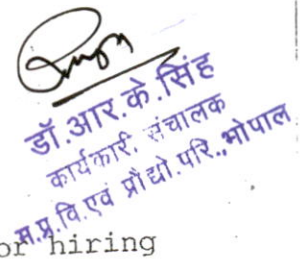 डॉ.आर.के.सिंह
कार्यकारी संचालक
म.प्र.वि.एवं प्रौद्यो.परि.,भोपाल
or hiring